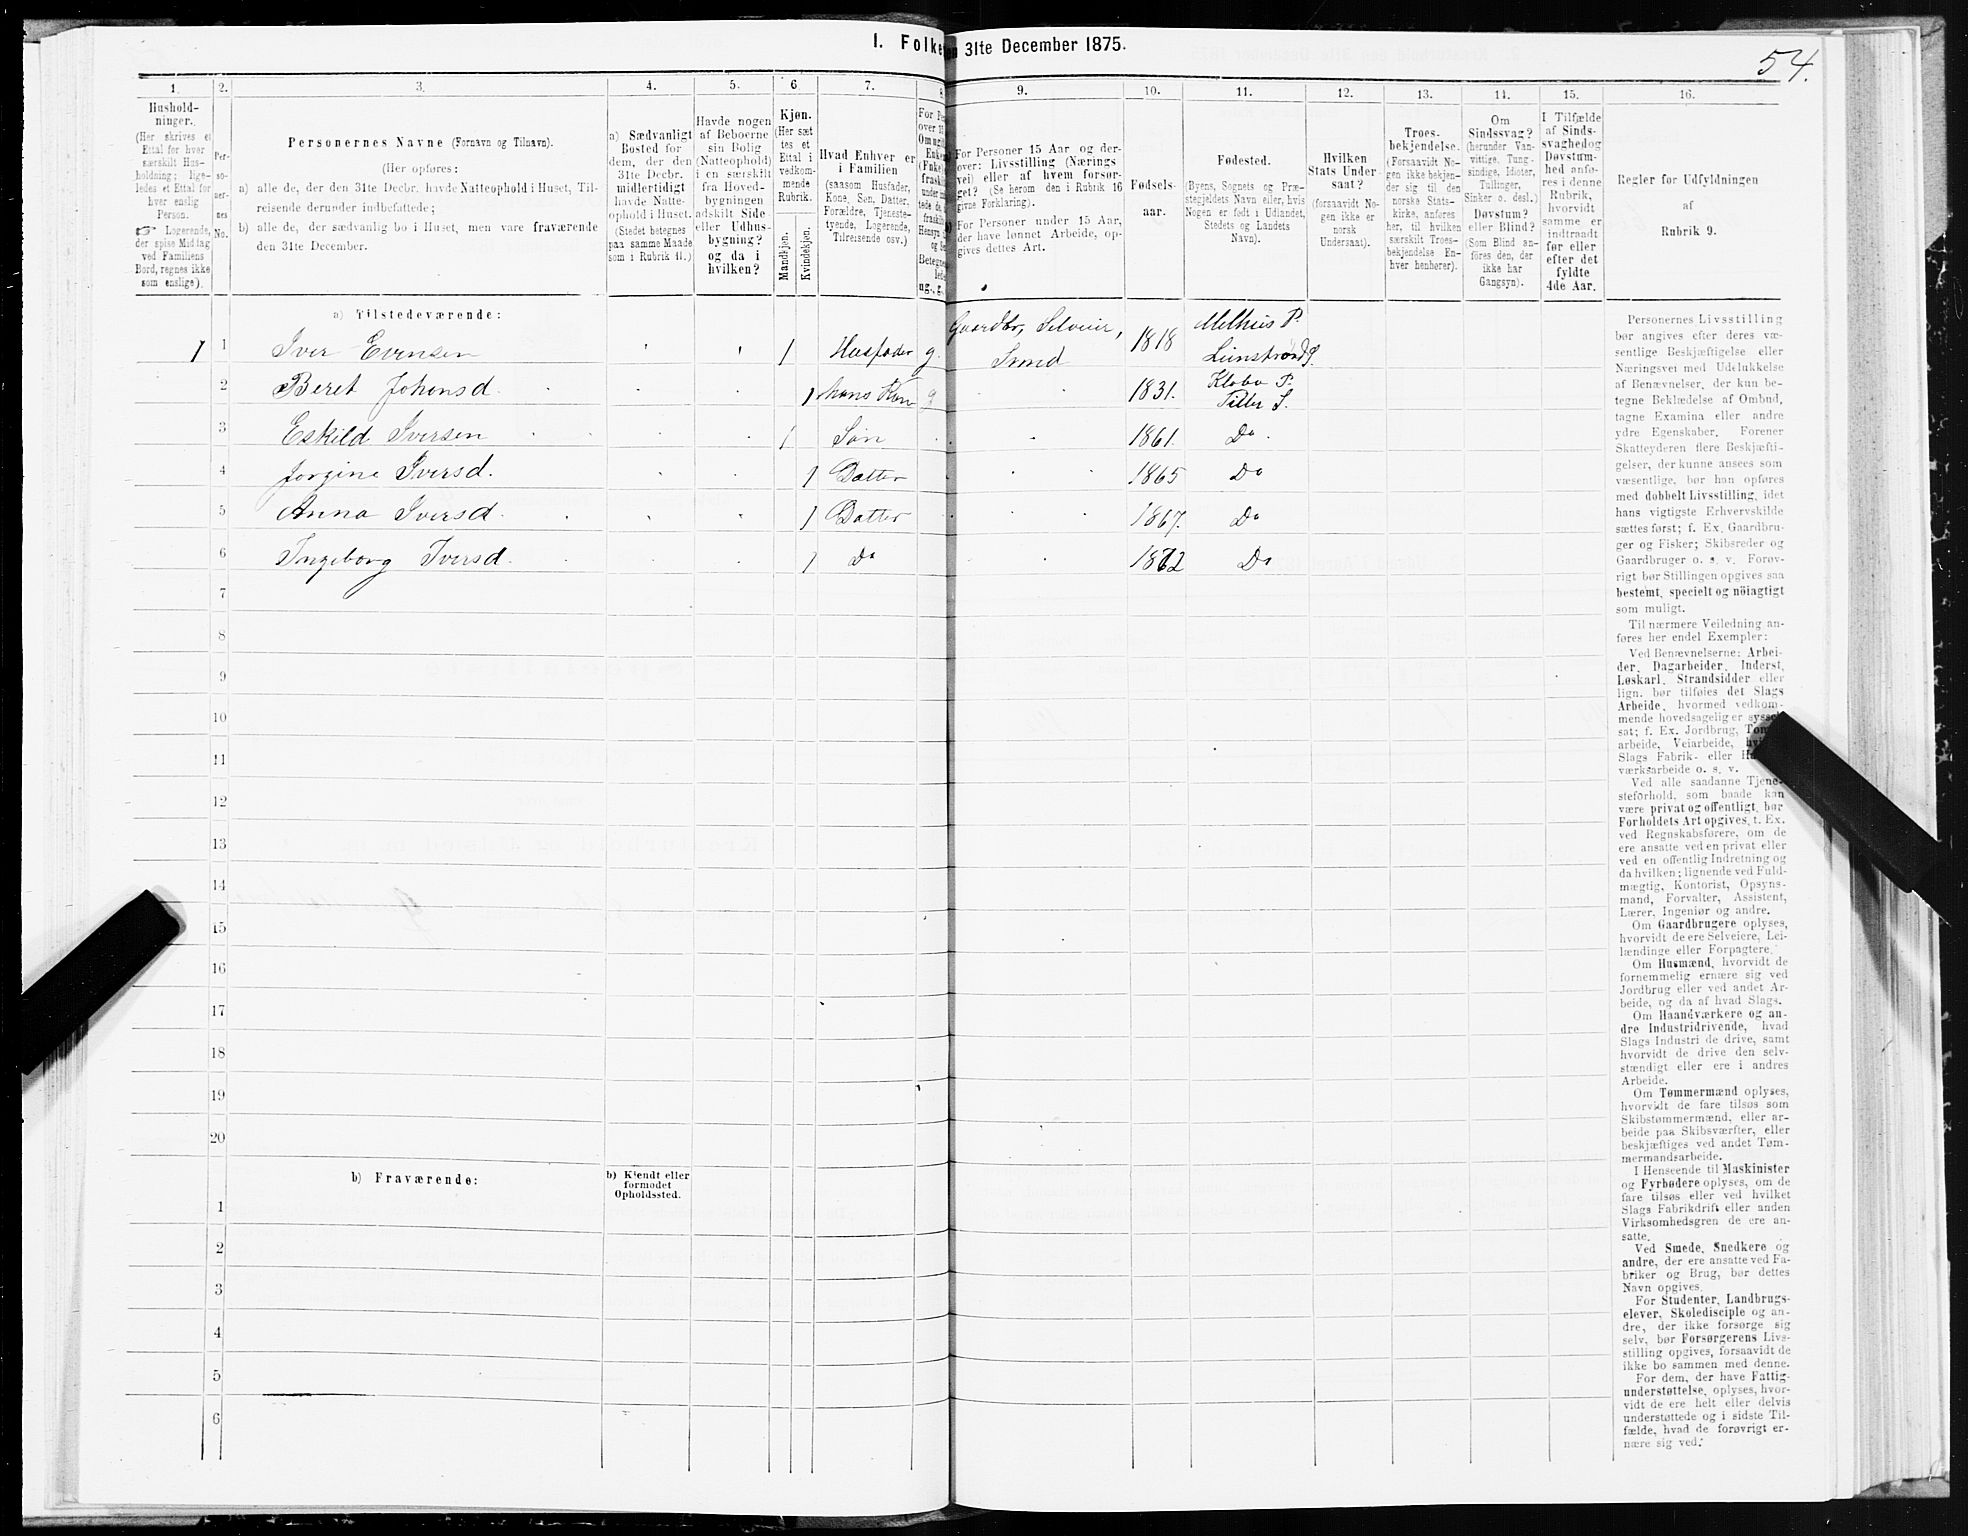 I. Folke en 31te December 1875.
54.
1. 2. 3. 4. 5. 6. 7. 8. 9. 10. 11. 12. 13. 14. 15. 16.
Hushold-
ninger.
(Her skrives et
Ettal for hver
særskilt Hus-
holdning; lige-
ledes et Ettal for
hver enslig
Person.
☞ Logerende,
der spise Middag
ved Familiens
Bord, regnes ikke
som enslige).
Per-
so-
ner-
nes
No.
Personernes Navne (Fornavn og Tilnavn).
(Her opføres:
a) alle de, der den 31te Decbr. havde Natteophold i Huset, Til-
reisende derunder indbefattede;
b) alle de, der sædvanlig bo i Huset, men vare fraværende
den 31te December.
a) Sædvanligt
Bosted for
dem, der den
31te Decbr.
midlertidigt
havde Natte-
ophold i Huset.
(Stedet betegnes
paa samme Maade
som i Rubrik 11.)
Havde nogen
af Beboerne
sin Bolig
(Natteophold)
i en særskilt
fra Hoved-
bygningen
adskilt Side-
eller Udhus-
bygning?
og da i
hvilken?
Kjøn.
(Her sæt-
tes et
Ettal i
vedkom-
mende
Rubrik.
Mandkjøn.
Kvindekjøn.
Hvad Enhver er
i Familien
(saasom Husfader,
Kone, Søn, Datter,
Forældre, Tjeneste-
tyende, Logerende,
Tilreisende osv.)
For Personer 15 Aar og der-
over: Livsstilling (Nærings-
vei) eller af hvem forsør-
get? (Se herom den i Rubrik 16
givne Forklaring).
For Personer under 15 Aar,
der have lønnet Arbeide, op-
gives dettes Art.
Fødsels-
aar.
Fødested.
(Byens, Sognets og Præ-
stegjeldets Navn eller, hvis
Nogen er født i Udlandet,
Stedets og Landets
Navn).
Hvilken
Stats Under-
saat?
(forsaavidt No-
gen ikke er
norsk
Undersaat).
Troes-
bekjendelse.
(Forsaavidt No-
gen ikke bekjen-
der sig til den
norske Stats-
kirke, anføres
her, til hvilken
særskilt Troes-
bekjendelse En-
hver henhører).
Om
Sindssvag?
(herunder Van-
vittige, Tung-
sindige, Idioter,
Tullinger,
Sinker o. desl.)
Døvstum?
eller Blind?
(Som Blind an-
føres den, der
ikke har
Gangsyn).
I Tilfælde
af Sinds-
svaghed og
Døvstum-
hed anfø-
res i denne
Rubrik,
hvorvidt
samme er
indtraadt
før eller
efter det
fyldte
4de Aar.
Regler for Udfyldningen
af
Rubrik 9.
a) Tilstedeværende:
1 1 Iver Evensen 1 Husfader g. Gaardbr, Selveier, Smed 1818 Melhus P. Leinstrand S.
2 Beret Johansd. 1 hans Kone g 1831. Klæbo P. Tiller S.
3 Eskild Iversen 1 Søn 1861. Do
4 Jorgine Iversd. 1 Datter 1865 Do
5 Anna Iversd. 1 Datter 1867. Do
6 Ingeborg Iversd. 1 Do Do
7
8
9
10
11
12
13
14
15
16
17
18
19
20
b) Fraværende:
b) Kjendt eller
formodet
Opholdssted.
1
2
3
4
5
6
Personernes Livsstilling
bør angives efter deres væ-
sentlige Beskjæftigelse eller
Næringsvei med Udelukkelse
af Benævnelser, der kun be-
tegne Beklædelse af Ombud,
tagne Examina eller andre
ydre Egenskaber. Forener
Skatteyderen flere Beskjæfti-
gelser, der kunne ansees som
væsentlige, bør han opføres
med dobbelt Livsstilling, idet
hans vigtigste Erhvervskilde
sættes først; f. Ex. Gaardbru-
ger og Fisker; Skibsreder og
Gaardbruger o. s. v. Forøv-
rigt bør Stillingen opgives saa
bestemt, specielt og nöiagtigt
som muligt.
Til nærmere Veiledning an-
føres her endel Exempler:
Ved Benævnelserne: Arbei-
der, Dagarbeider, Inderst,
Løskarl, Strandsidder eller
lign. bør tilføies det Slags
Arbeide, hvormed vedkom-
mende hovedsagelig er syssel-
sat; f. Ex. Jordbrug,
arbeide, Veiarbeide,
Slags Fabrik- eller
værksarbeide o. s. v.
Ved alle saadanne Tjene-
steforhold, som baade kan
være privat og offentligt, bør
Forholdets Art opgives, t. Ex.
ved Regnskabsførere, om de
ere ansatte ved en privat eller
ved en offentlig Indretning og
da hvilken; lignende ved Fuld-
mægtig, Kontorist, Opsyns-
mand, Forvalter, Assistent,
Lærer, Ingeniør og andre.
Om Gaardbrugere oplyses,
hvorvidt de ere Selveiere, Lei-
lændinge eller Forpagtere.
Om Husmænd, hvorvidt de
fornemmelig ernære sig ved
Jordbrug eller ved andet Ar-
beide, og da af hvad Slags.
Om Haandværkere og an-
dre Industridrivende, hvad
Slags Industri de drive, samt
hvorvidt de drive den selv-
stændigt eller ere i andres
Arbeide.
Om Tømmermænd oplyses,
hvorvidt de fare tilsøs som
Skibstømmermænd, eller ar-
beide paa Skibsværfter, eller
beskjæftiges ved andet Tøm-
mermandsarbeide.
I Henseende til Maskinister
og Fyrbødere oplyses, om de
fare tilsøs eller ved hvilket
Slags Fabrikdrift eller anden
Virksomhedsgren de ere an-
satte.
Ved Smede, Snedkere og
andre, der ere ansatte ved Fa-
briker og Brug, bør dettes
Navn opgives.
For Studenter, Landbrugs-
elever, Skoledisciple og an-
dre, der ikke forsørge sig
selv, bør Forsørgerens Livs-
stilling opgives, forsaavidt de
ikke bo sammen med denne.
For dem, der have Fattig-
understøttelse, oplyses, hvor-
vidt de ere helt eller delvis
understøttede og i sidste Til-
fælde, hvad de forøvrigt er-
nære sig ved.